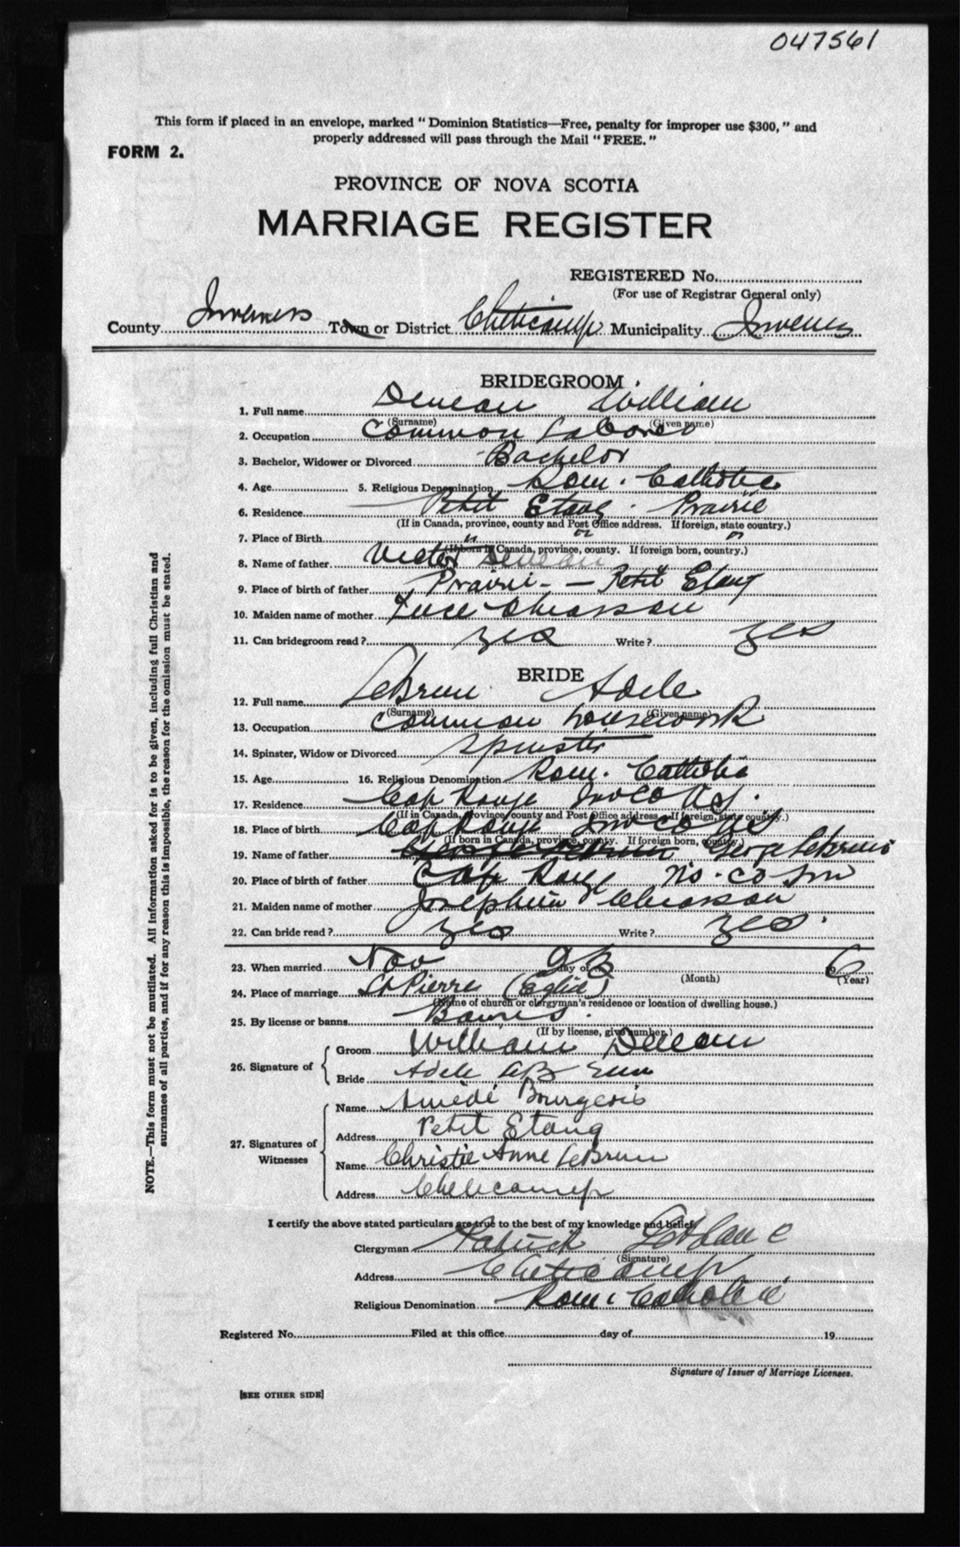 047561
This form if placed in an envelope, marked "Dominion Statistics—Free, penalty for improper use $300," and
properly addressed will pass through the Mail "FREE."
FORM 2.
PROVINCE OF NOVA SCOTIA
MARRIAGE REGISTER
REGISTERED No.
(For use of Registrar General only)
County Inverness Town or District Cheticamp Municipality Inverness
BRIDEGROOM
1. Full name Deveau William
(Surname) (Given name)
2. Occupation Common Laborer
3. Bachelor, Widower or Divorced Bachelor
4. Age 5. Religious Denomination Rom. Catholic
6. Residence Petit Etang. Prairie
(If in Canada, province, county and Post Office address. If foreign, state country.)
7. Place of Birth " " "
(If born in Canada, province, county. If foreign born, country.)
8. Name of father Victor Deveau
9. Place of birth of father Prairie - Petit Etang
10. Maiden name of mother Luce Chiasson
11. Can bridegroom read? yes Write? yes
BRIDE
12. Full name LeBrun Adele
(Surname) (Given name)
13. Occupation Common housework
14. Spinster, Widow or Divorced Spinster
15. Age 16. Religious Denomination Rom. Catholic
17. Residence Cap Rouge Inv Co
(If in Canada, province, county and Post Office address. If foreign, state country.)
18. Place of birth Cap Rouge Inv Co NS
(If born in Canada, province, county. If foreign born, country.)
19. Name of father George LeBrun
20. Place of birth of father Cap Rouge NS. Co Inv
21. Maiden name of mother Josephine Chiasson
22. Can bride read? yes Write? yes.
23. When married Nov day of 6
(Month) (Year)
24. Place of marriage St Pierre (Eglise)
(Name of church or clergyman's residence or location of dwelling house.)
25. By license or banns Banns.
(If by license, give number.)
26. Signature of
Groom William Deveau
Bride Adele LeBrun
27. Signatures of Witnesses
Name Amédé Bourgeois
Address Petit Etang
Name Christie Anne LeBrun
Address Cheticamp
I certify the above stated particulars are true to the best of my knowledge and belief,
Clergyman Patrick LeBlanc
(Signature)
Address Cheticamp
Religious Denomination Rom. Catholic
Registered No. Filed at this office day of 19
Signature of Issuer of Marriage Licenses.
[SEE OTHER SIDE]
NOTE.—This form must not be mutilated. All information asked for is to be given, including full Christian and
surnames of all parties, and if for any reason this is impossible, the reason for the omission must be stated.